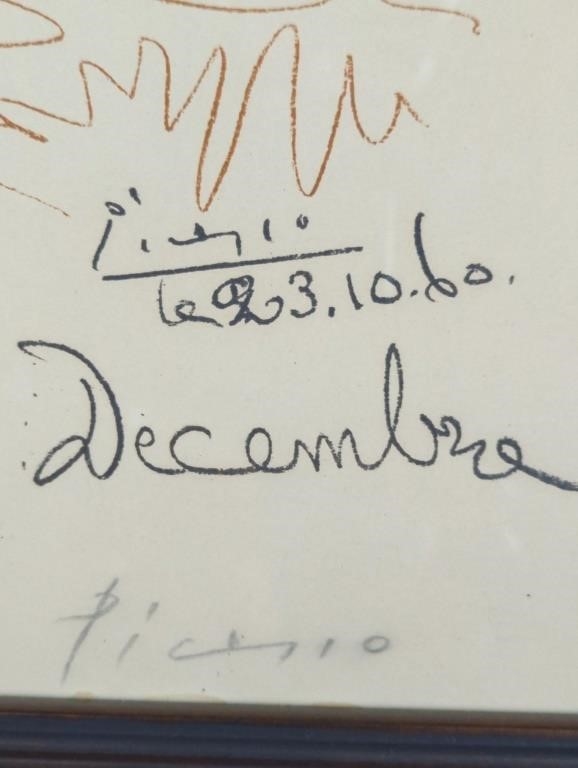 Picasso
le 23.10.60.
Decembre
Picasso